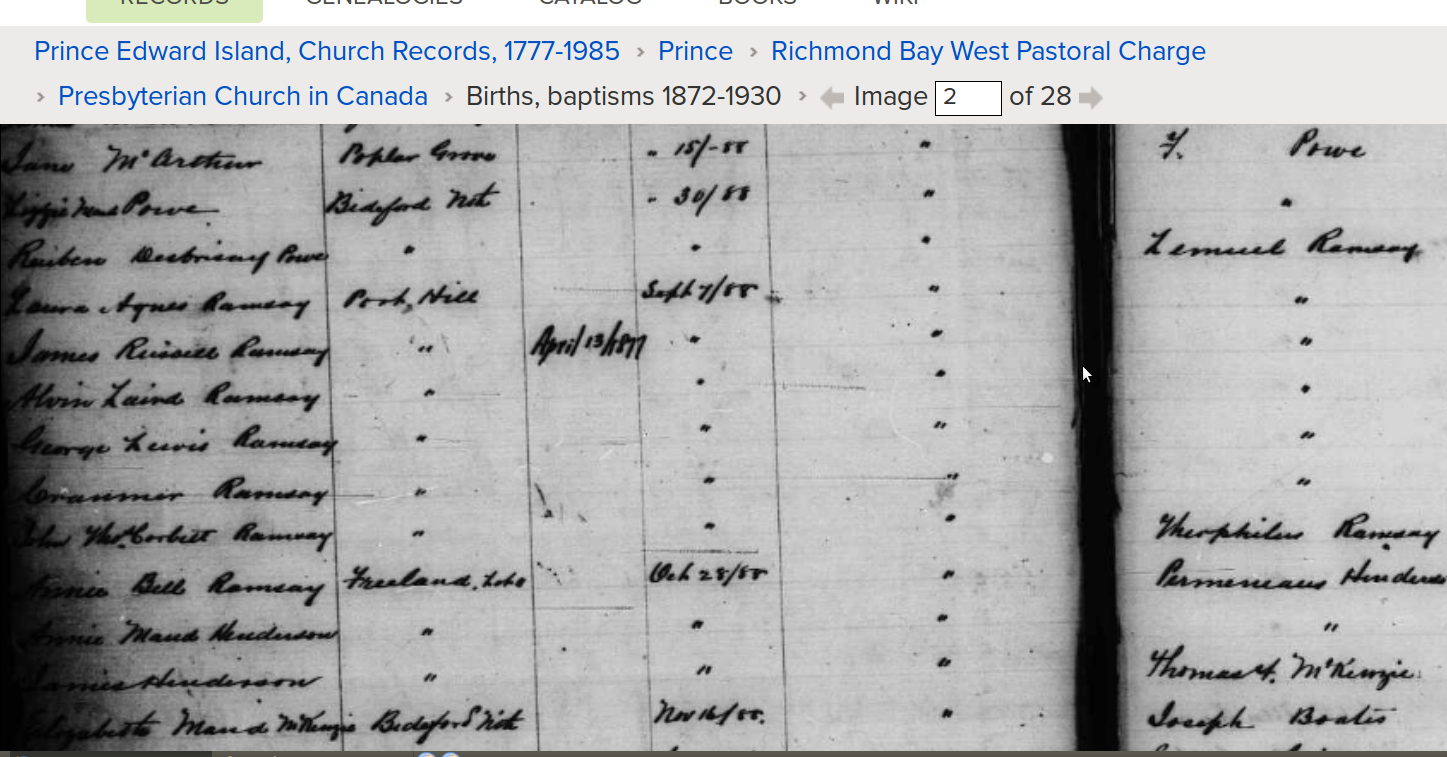 RECORDS GENEALOGIES CATALOG BOOKS WIKI
Prince Edward Island, Church Records, 1777-1985 › Prince › Richmond Bay West Pastoral Charge
› Presbyterian Church in Canada › Births, baptisms 1872-1930 › Image 2 of 28
Jane McArthur Poplar Grove " 15/-88 " F. Powe
Lizzie Powe Bideford Not " 30/88 " "
Reuben Desbrisay Powe " " " Lemuel Ramsay
Laura Agnes Ramsay Port Hill Sept 7/88 " "
James Russell Ramsay " April 13/1877 " " "
Alvin Laird Ramsay " " " "
George Lewis Ramsay " " " "
Cranmer Ramsay " " " "
John Thos. Corbett Ramsay " " " Theophilus Ramsay
Annie Bell Ramsay Freeland, Oct 28/88 " Permeneaus Henderso
Annie Maud Henderson " " " "
James Henderson " " " Thomas McKenzie
Elizabeth Maud McKenzie Bideford Not Nov 16/88. " Joseph